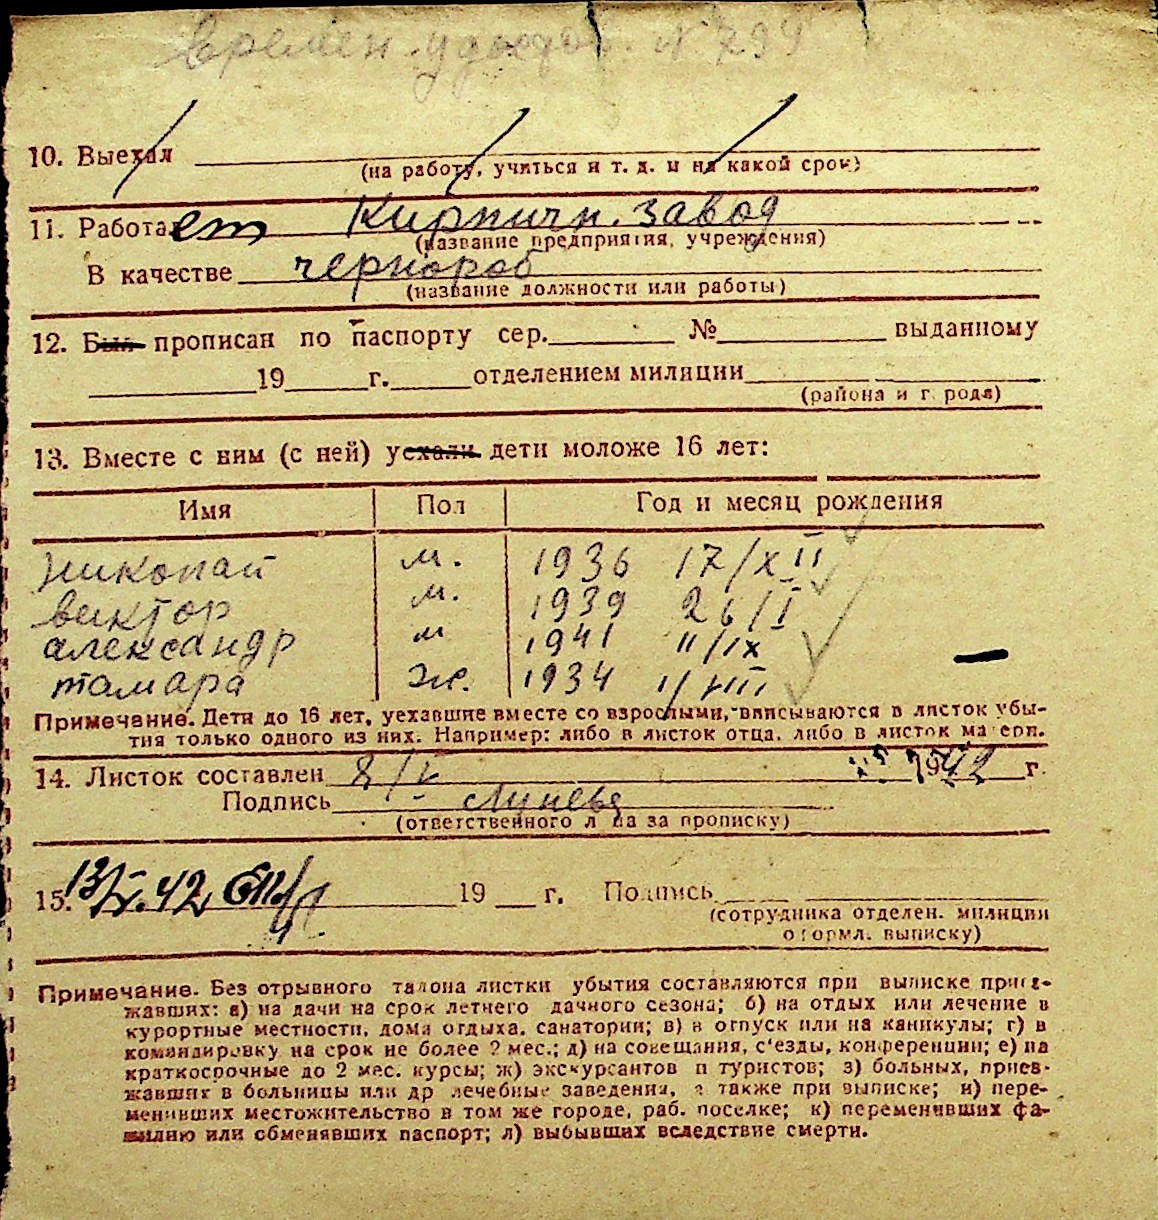 времен. удост. N 799
10. Выехал
(на работу, учиться и т. д. и на какой срок)
11. Работает Кирпичн. завод
(название предприятия, учреждения)
В качестве чернораб
(название должности или работы)
12. Был прописан по паспорту сер. № выданному
19 г. отделением милиции
(района и города)
13. Вместе с ним (с ней) уехали дети моложе 16 лет:
Имя Пол Год и месяц рождения
николай м. 1936 17/XII
виктор м. 1939 26/I
александр м 1941 11/IX
тамара ж. 1934 1/VIII
Примечание. Дети до 16 лет, уехавшие вместе со взрослыми, вписываются в листок убы-
тия только одного из них. Например: либо в листок отца, либо в листок матери.
14. Листок составлен 8/V 1942 г.
Подпись
(ответственного лица за прописку)
15. 13/V.42 19 г. Подпись
(сотрудника отделен. милиции
оформл. выписку)
Примечание. Без отрывного талона листки убытия составляются при выписке приез-
жавших: а) на дачи на срок летнего дачного сезона; б) на отдых или лечение в
курортные местности, дома отдыха, санатории; в) в отпуск или на каникулы; г) в
командировку на срок не более 2 мес.; д) на совещания, с'езды, конференции; е) на
краткосрочные до 2 мес. курсы; ж) экскурсантов и туристов; з) больных, приез-
жавших в больницы или др лечебные заведения, а также при выписке; и) пере-
менивших местожительство в том же городе, раб. поселке; к) переменивших фа-
милию или обменявших паспорт; л) выбывших вследствие смерти.